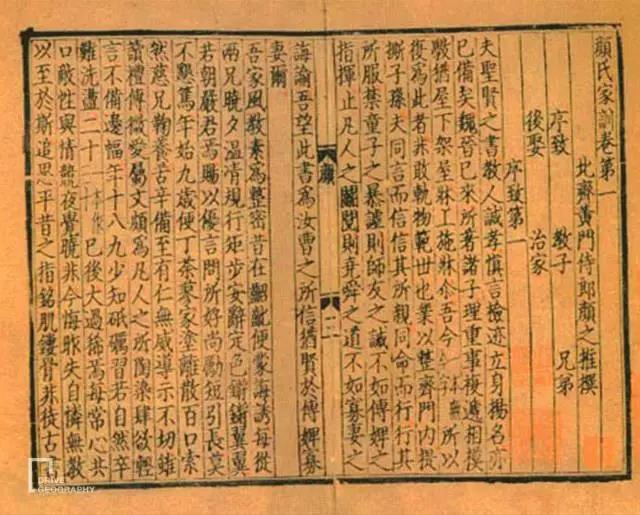 顔氏家訓卷第一
北齊黃門侍郎顔之推撰
序致 教子 兄弟
後娶 治家
序致第一
夫聖賢之書教人誠孝慎言檢迹立身揚名亦
已備矣魏晉已來所著諸子理重事複遞相模
斆猶屋下架屋牀上施牀尒吾今所以
復爲此者非敢軌物範世也業以整齊門内提
撕子孫夫同言而信信其所親同命而行行其
所服禁童子之暴謔則師友之誡不如傅婢之
指揮止凡人之鬭鬩則堯舜之道不如寡妻之
顔一
二
誨諭吾望此書爲汝曹之所信猶賢於傅婢寡
妻爾
吾家風教素爲整密昔在齠齔便蒙誨誘每從
兩兄曉夕温凊規行矩步安辭定色鏘鏘翼翼
若朝嚴君焉賜以優言問所好尚勵短引長莫
不懇篤年始九歲便丁荼蓼家塗離散百口索
然慈兄鞠養苦辛備至有仁無威導示不切雖
讀禮傳微愛屬文頗爲凡人之所陶染肆欲輕
言不備邊幅年十八九少知砥礪習若自然卒
難洗盪二十已後大過稀焉每常心共
口敵性與情競夜覺曉非今悔昨失自憐無教
以至於斯追思平昔之指銘肌鏤骨非徒古
DRIVE
GEOGRAPHY